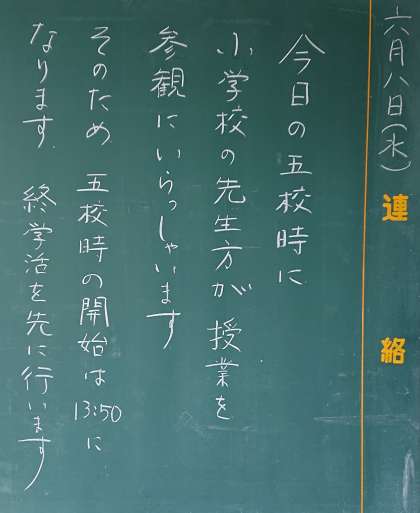 六月八日(水)
連絡
今日の五校時に
小学校の先生方が 授業を
参観にいらっしゃいます
そのため 五校時の開始は 13:50 に
なります。 終学活を先に行います